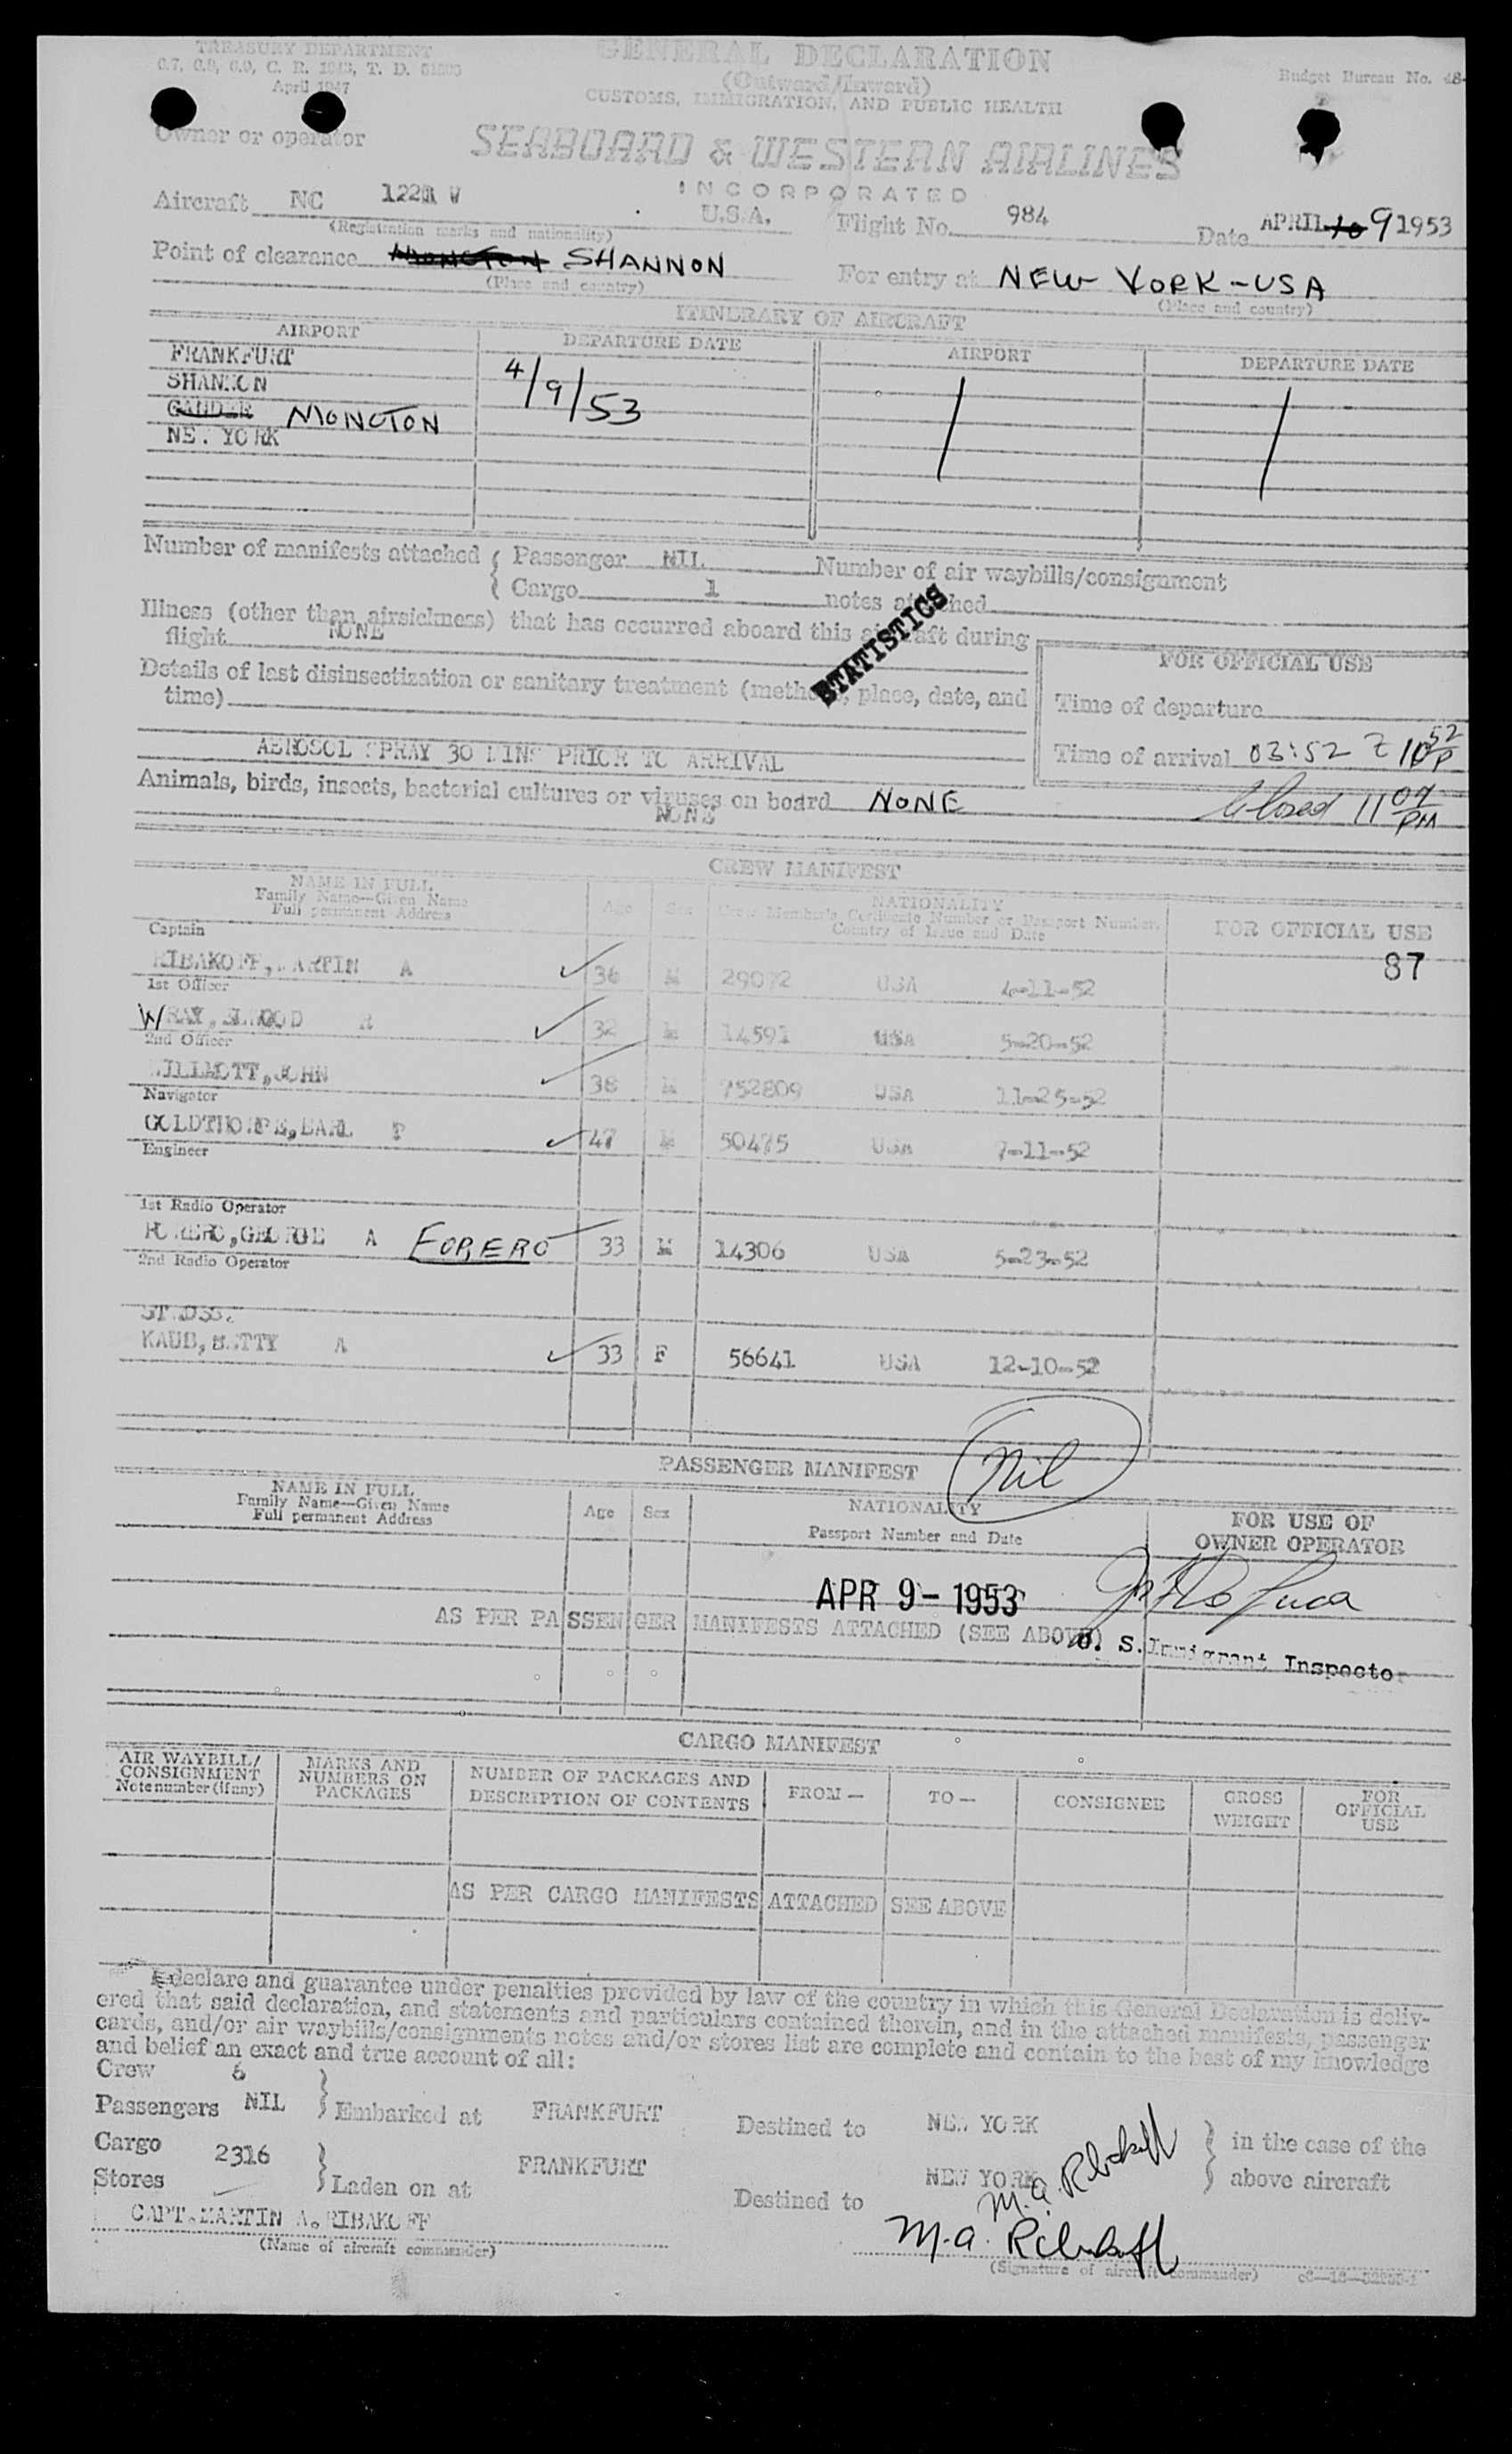 TREASURY DEPARTMENT
C. R. 1943, T. D.
April 1947
GENERAL DECLARATION
(Outward/Inward)
CUSTOMS, IMMIGRATION, AND PUBLIC HEALTH
Budget Bureau No. 48-
Owner or operator
SEABOARD & WESTERN AIRLINES
INCORPORATED
Aircraft NC W U.S.A. Flight No. 984 Date APRIL 9 1953
(Registration marks and nationality)
Point of clearance MONCTON SHANNON For entry at NEW YORK-USA
(Place and country) (Place and country)
ITINERARY OF AIRCRAFT
AIRPORT DEPARTURE DATE AIRPORT DEPARTURE DATE
FRANKFURT 4/9/53
SHANNON
GANDER MONCTON
NE. YORK
Number of manifests attached { Passenger NIL Number of air waybills/consignment
{ Cargo 1 notes attached
Illness (other than airsickness) that has occurred aboard this aircraft during
flight NONE
STATISTICS
FOR OFFICIAL USE
Details of last disinsectization or sanitary treatment (method, place, date, and
time)
Time of departure
AEROSOL SPRAY 30 MINS PRIOR TO ARRIVAL
Time of arrival 03:52 Z 10 52 P
Animals, birds, insects, bacterial cultures or viruses on board NONE
NONE
Closed 11 07 PM
CREW MANIFEST
NAME IN FULL
Family Name—Given Name
Full permanent Address
Age Sex
NATIONALITY
Crew Member's Certificate Number or Passport Number,
Country of Issue and Date
FOR OFFICIAL USE
87
Captain
RIBAKOFF, MARTIN A 36 M 29072 USA 4-11-52
1st Officer
WRAY, ELWOOD R 32 M 14591 USA 5-20-52
2nd Officer
JOHN 38 M 752809 USA 11-25-52
Navigator
GOLDTHORPE, EARL F 47 M 50475 USA 7-11-52
Engineer
1st Radio Operator
GEORGE A FORERO 33 M 14306 USA 5-23-52
2nd Radio Operator
KAUB, BETTY A 33 F 56641 USA 12-10-52
PASSENGER MANIFEST Nil
NAME IN FULL
Family Name—Given Name
Full permanent Address
Age Sex
NATIONALITY
Passport Number and Date
FOR USE OF
OWNER OPERATOR
APR 9 - 1953
AS PER PASSENGER MANIFESTS ATTACHED (SEE ABOVE)
U. S. Immigrant Inspector
CARGO MANIFEST
AIR WAYBILL/
CONSIGNMENT
Note number (if any)
MARKS AND
NUMBERS ON
PACKAGES
NUMBER OF PACKAGES AND
DESCRIPTION OF CONTENTS
FROM — TO — CONSIGNEE
GROSS
WEIGHT
FOR
OFFICIAL
USE
AS PER CARGO MANIFESTS ATTACHED SEE ABOVE
I declare and guarantee under penalties provided by law of the country in which this General Declaration is deliv-
ered that said declaration, and statements and particulars contained therein, and in the attached manifests, passenger
cards, and/or air waybills/consignments notes and/or stores list are complete and contain to the best of my knowledge
and belief an exact and true account of all:
Crew 6
Passengers NIL } Embarked at FRANKFURT Destined to NEW YORK } in the case of the
Cargo 2316
Stores } Laden on at FRANKFURT Destined to NEW YORK } above aircraft
M. A. Ribakoff
CAPT. MARTIN A. RIBAKOFF M. A. Ribakoff
(Name of aircraft commander) (Signature of aircraft commander)